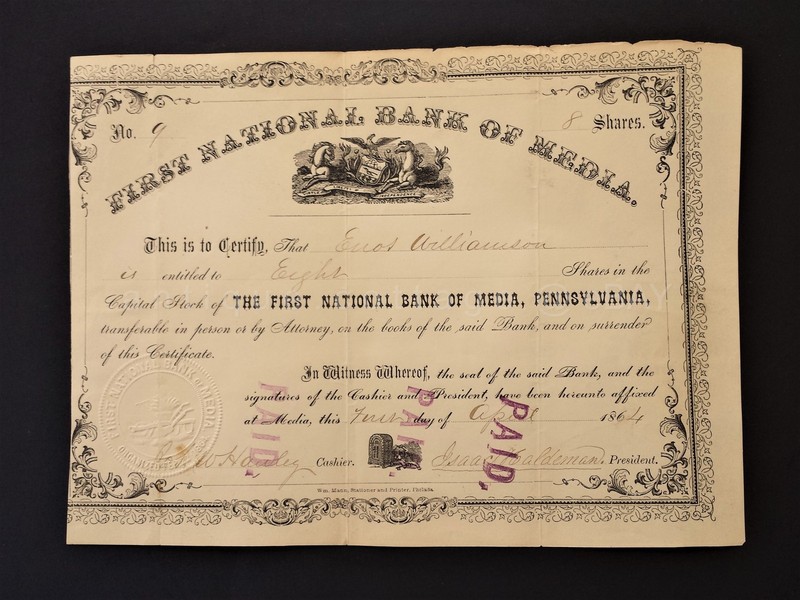 No. 9
8 Shares.
FIRST NATIONAL BANK OF MEDIA.
This is to Certify, That Enos Williamson
is entitled to Eight Shares in the
Capital Stock of THE FIRST NATIONAL BANK OF MEDIA, PENNSYLVANIA,
transferable in person or by Attorney, on the books of the said Bank, and on surrender
of this Certificate.
In Witness Whereof, the seal of the said Bank, and the
signatures of the Cashier and President, have been hereunto affixed
at Media, this First day of April 1864
FIRST NATIONAL BANK OF MEDIA
PAID,
PAID,
PAID,
Hawley Cashier.
Isaac Haldeman President.
Wm. Mann, Stationer and Printer, Philada.